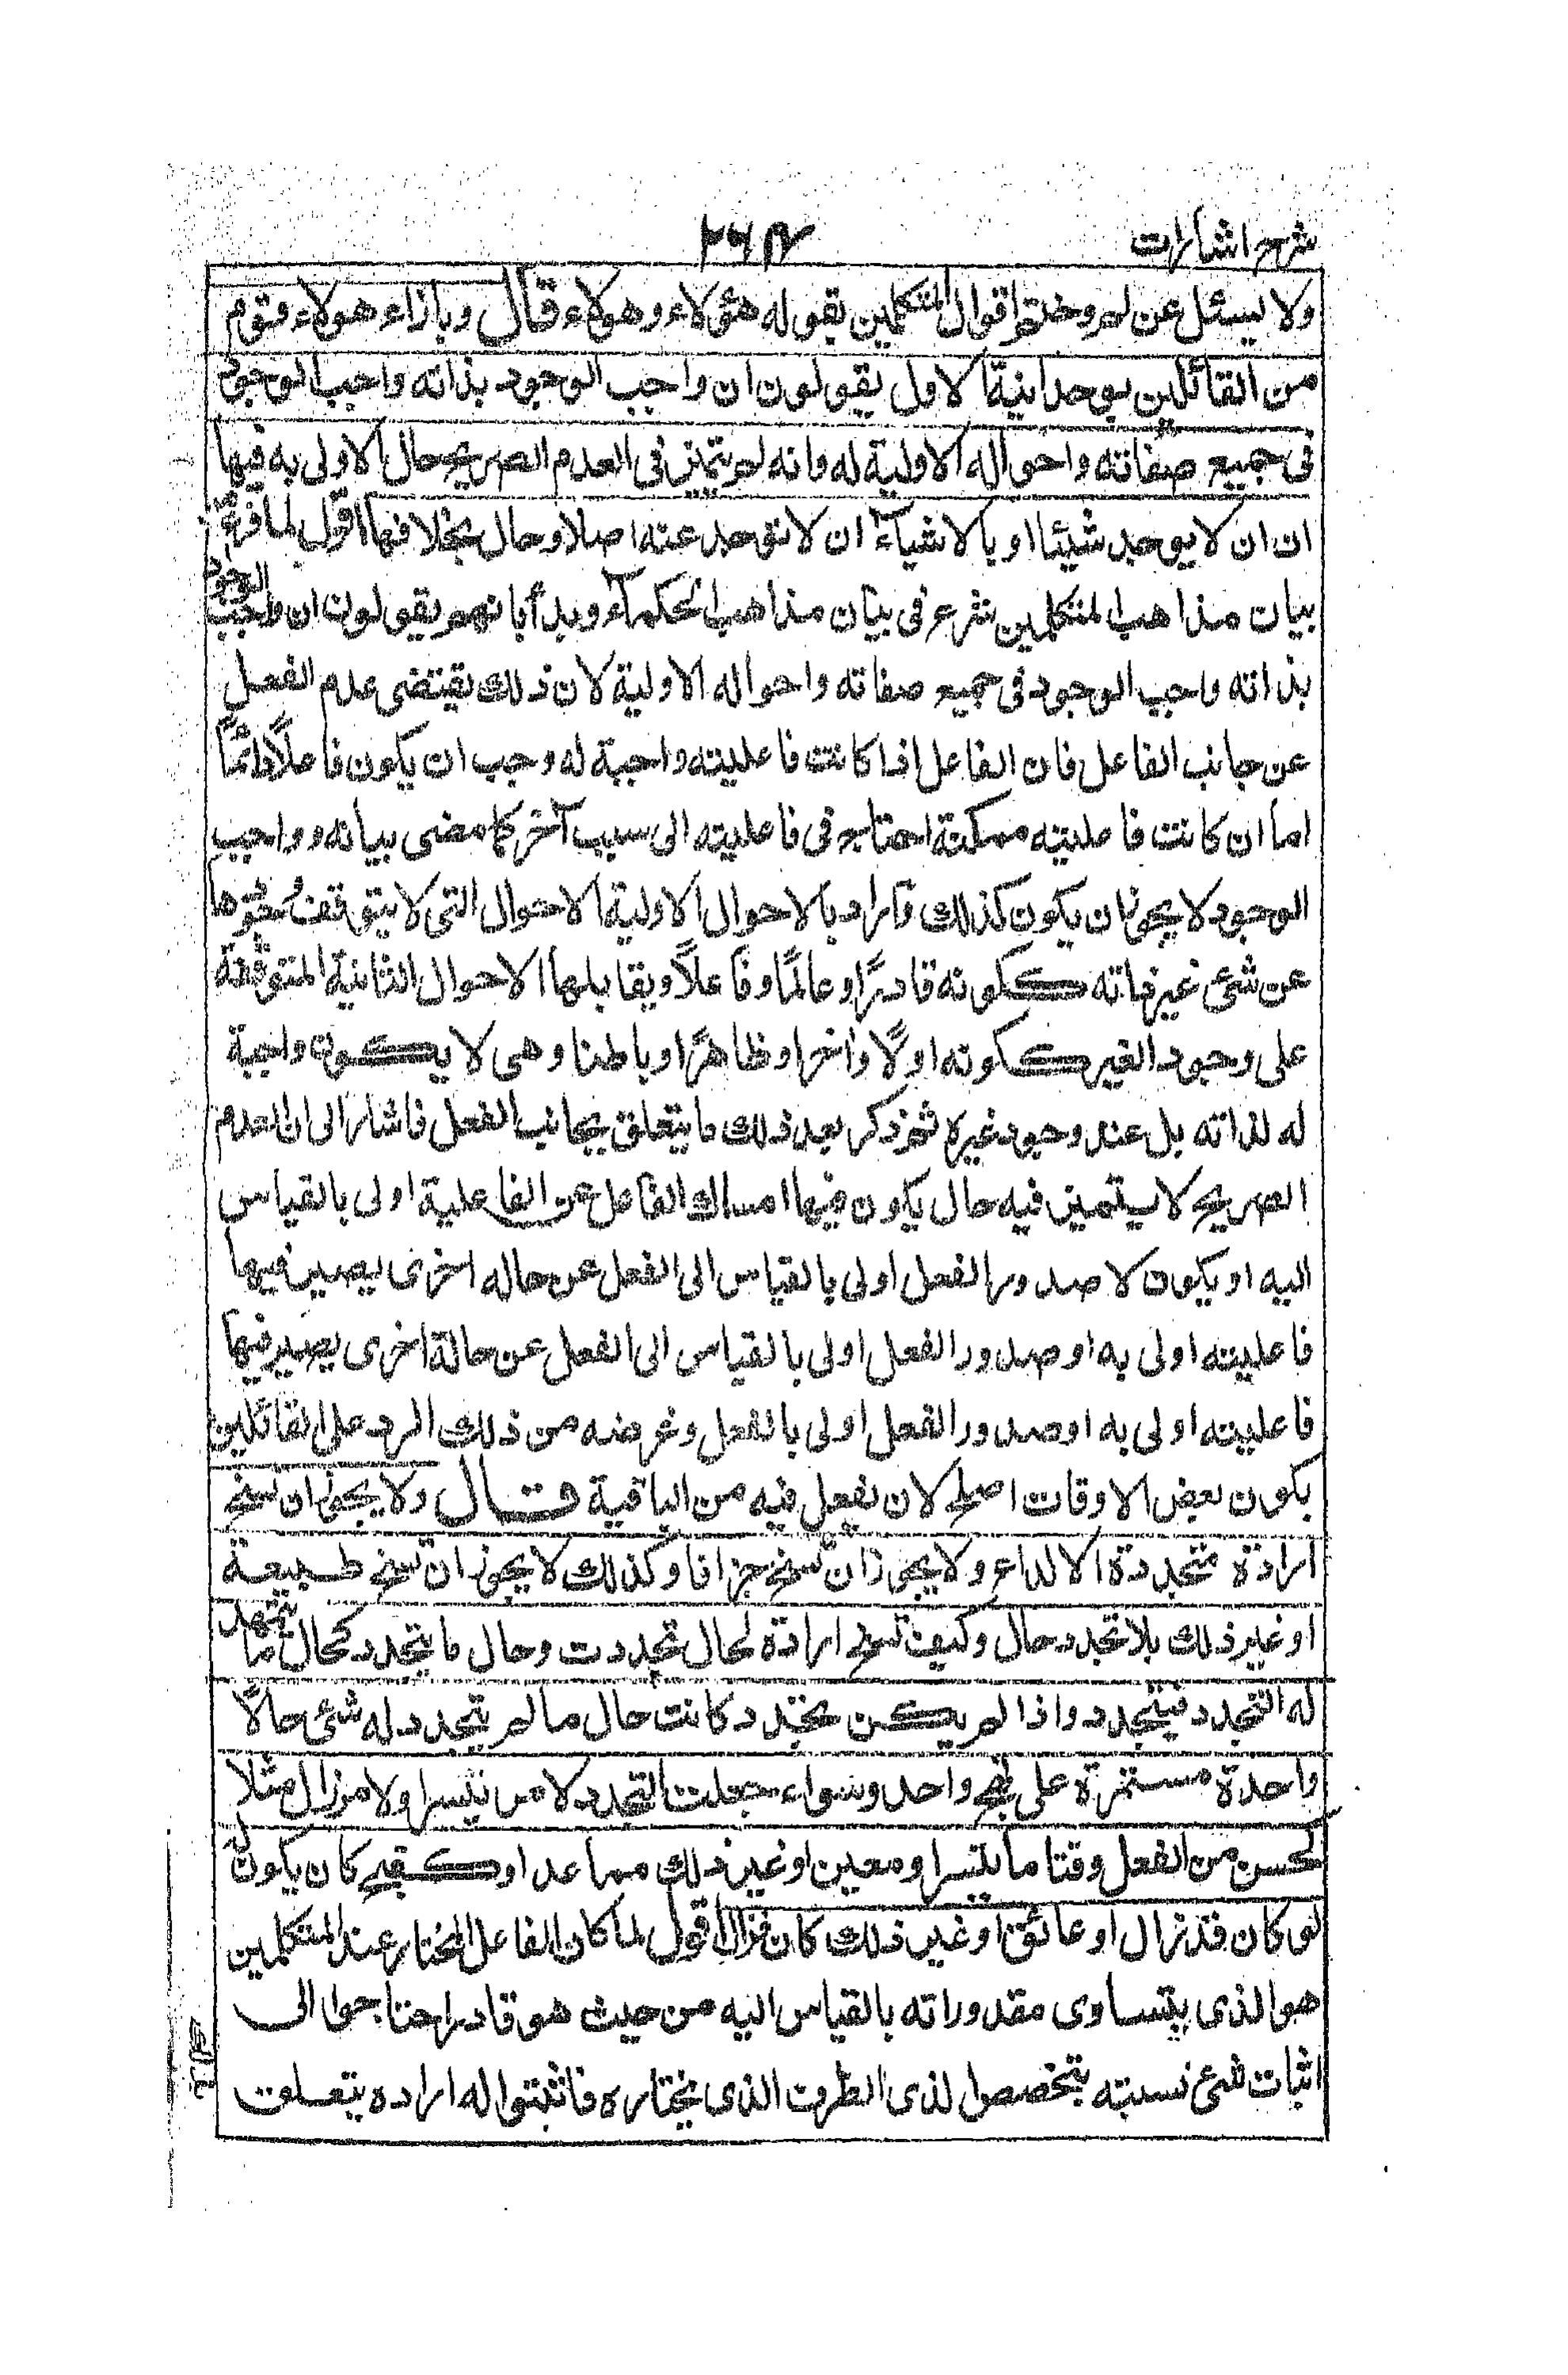 شرح اشارات ٢٦٣
ولا يسئل عن لم وختم اقوال المتكلمين بقوله هؤلاء وهولاء قال وبازاء هولاء قوم
من القائلين بوحدانية الاول يقولون ان واجب الوجود بذاته واجب الوجود
فى جميع صفاته واحواله الاولية له وانه لم يتميز فى العدم الصريح حال الاولى به فيها
ان ان لا يوجد شيئا او بالاشياء ان لا توجد عنه اصلا وحال بخلافها اقول لما فرغ عن
بيان مذاهب المتكلمين شرع فى بيان مذاهب الحكماء وبدأ بانهم يقولون ان واجب الوجود
بذاته واجب الوجود فى جميع صفاته واحواله الاولية لان ذلك يقتضى عدم الفعل
عن جانب الفاعل فان الفاعل اذا كانت فاعليته واجبة له وجب ان يكون فاعلاً دائماً
اما ان كانت فاعليته ممكنة احتاج فى فاعليته الى سبب آخر كما مضى بيانه وواجب
الوجود لا يجوز ان يكون كذلك واراد بالاحوال الاولية الاحوال التى لا يتوقف وجودها
عن شئ غير ذاته ككونه قادرًا وعالمًا وفاعلاً ويقابلها الاحوال الثانية المتوقفة
على وجود الغير ككونه اولًا واخرا وظاهرًا وباطنا وهى لا يكون واجبة
له لذاته بل عند وجود غيره ثم ذكر بعد ذلك ما يتعلق بجانب الفعل فاشار الى ان العدم
الصريح لا يتميز فيه حال يكون فيها امساك الفاعل عن الفاعلية اولى بالقياس
اليه او يكون لا صدور الفعل اولى بالقياس الى الفعل عن حاله اخرى يصير فيها
فاعليته اولى به او صدور الفعل اولى بالقياس الى الفعل عن حالة اخرى يصير فيها
فاعليته اولى به او صدور الفعل اولى بالفعل وغرضه من ذلك الرد على القائلين
بكون بعض الاوقات اصلح لان يفعل فيه من الباقية قال ولا يجوز ان تسنح
ارادة متجددة الا لداع ولا يجوز ان تسنح جزافا وكذلك لا يجوز ان تسنح طبيعة
او غير ذلك بلا تجدد حال وكيف تسنح ارادة لحال تجددت وحال ما يتجدد كحال ما يتمهد
له التجدد فيتجدد واذا لم يكن تجدد كانت حال ما لم يتجدد له شئ حالًا
واحدة مستمرة على نهج واحد وسواء جعلت التجدد لامر تيسر او لامر زال مثلا
لحسن من الفعل وقتا ما تيسر او معين او غير ذلك مما عد او كقبح كان يكون له
لو كان قد زال او عائق او غير ذلك كان فزال اقول لما كان الفاعل المختار عند المتكلمين
هو الذى يتساوى مقدوراته بالقياس اليه من حيث هو قادر احتاجوا الى
اثبات شئ نسبته بتخصص لذى الطرف الذى يختاره فاثبتوا له اراده يتعلق